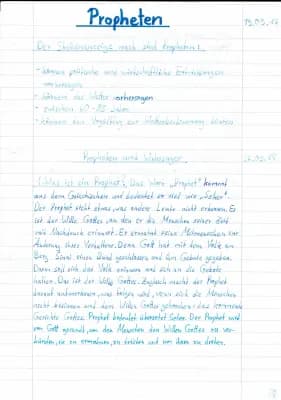 Propheten
- können politische und wirtschaftliche
- können das Wetter vorhersagen
- zwischen 60 - 85 Jahre
- können aus
Propheten und
Was ist ein Prophet? Das Wort "Prophet" kommt
aus dem Griechischen und bedeutet so viel wie "Seher".
Der Prophet sieht etwas, was andere Leute nicht erkennen. Es
ist der Wille Gottes, an den er die Menschen seiner Zeit
mit Nachdruck erinnert. Er ermahnt seine Mitmenschen zur
Änderung ihres Verhaltens. Denn Gott hat mit dem Volk am
Berg Sinai einen Bund geschlossen und ihm Gebote gegeben.
Daran soll sich das Volk und sich an die Gebote
halten. Das ist der Wille Gottes. Zugleich macht der Prophet
darauf aufmerksam, was folgen wird, wenn sich die Menschen
nicht besinnen und dem Willen Gottes gehorchen: das
Gericht Gottes. Prophet bedeutet übersetzt Seher. Der Prophet wird
von Gott gesandt, um den Menschen den Willen Gottes zu ver-
künden, sie zu ermahnen, zu trösten und um ihnen zu drohen.